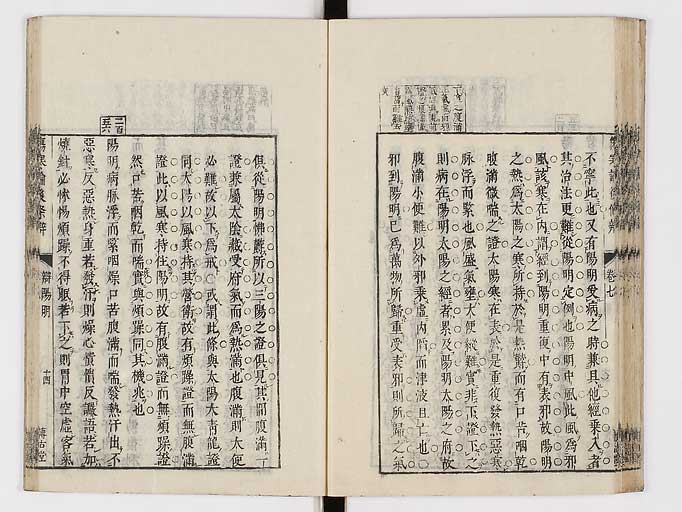 不寧此也又有陽明受病之時兼具他經乗入者
其治法更難從陽明定例也陽明中風此風爲邪
風該寒在内謂經到陽明重復中有表邪故陽明
之熱爲太陽之寒所持於是熱鬱而有口苦咽乾
腹滿微喘之證太陽寒在表於是重復發熱惡寒
脉浮而緊也風盛氣壅大便縱難實非下證下之
則病在陽明太陽之經者累及陽明太陽之府故
腹滿小便難以外邪乗虚内陷而津液且亡也
邪到陽明已爲萬物所歸重受表邪則所歸之氣
卷七
俱從陽明怫鬱所以三陽之證俱見其間腹滿一
證兼屬太陰蔵受府氣而爲熱滿也腹滿則大便
必難故以下爲戒或謂此條與太陽大青龍證
同太陽以風寒持其營衛故有煩躁證而無腹滿
證此以風寒持住陽明故有腹滿證而無煩躁證
然口苦咽乾而喘實與煩躁同其機兆也
陽明病脉浮而緊咽燥口苦腹滿而喘發熱汗出不
惡寒反惡熱身重若發汗則燥心憒憒反譫語若加
燒針必怵惕煩躁不得眠若下之則胃中空虚客氣
辯陽明
十四